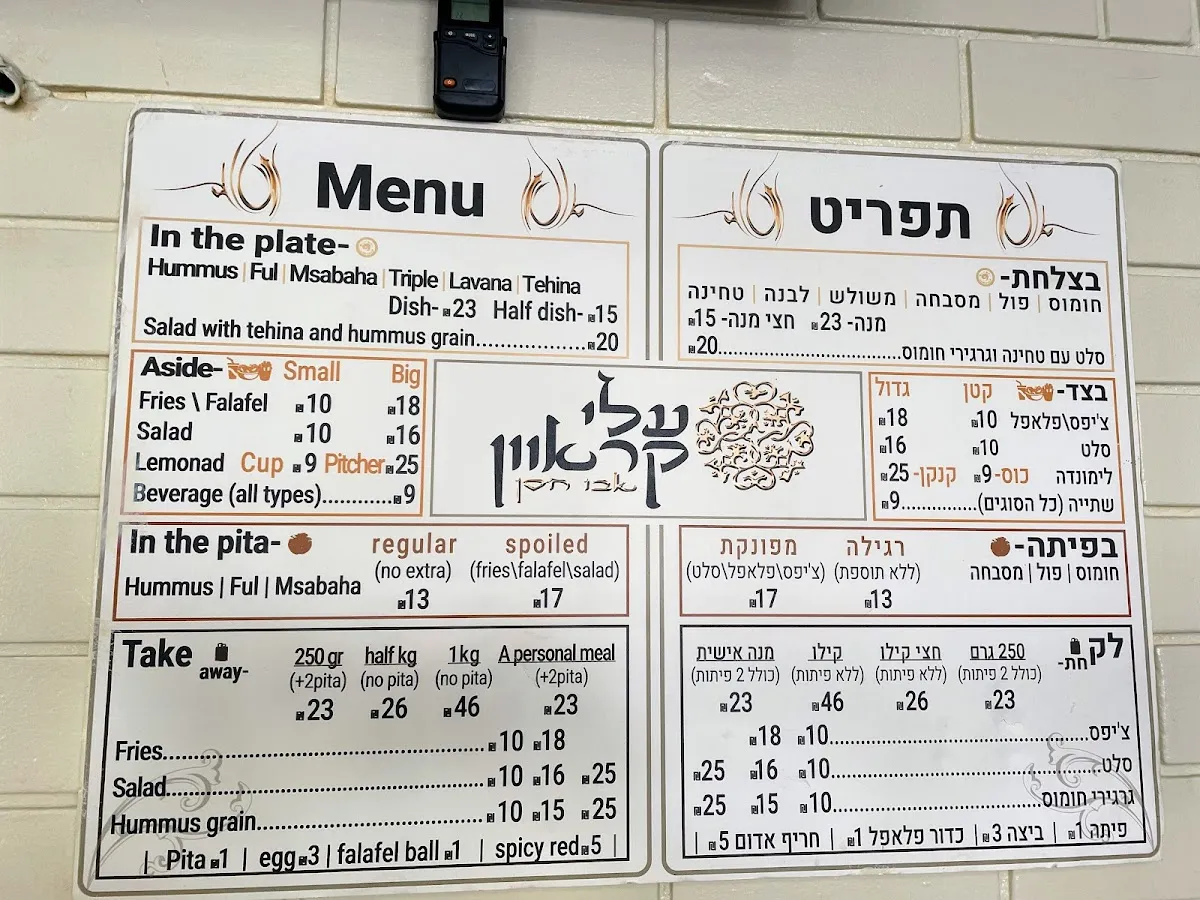 Menu
In the plate-
Hummus | Ful | Msabaha | Triple | Lavana | Tehina
Dish- ₪23 Half dish- ₪15
Salad with tehina and hummus grain......................₪20
Aside- Small Big
Fries \ Falafel ₪10 ₪18
Salad ₪10 ₪16
Lemonad Cup ₪9 Pitcher ₪25
Beverage (all types)............₪9
In the pita- regular spoiled
(no extra) (fries\falafel\salad)
Hummus | Ful | Msabaha ₪13 ₪17
Take away-
250 gr half kg 1kg A personal meal
(+2pita) (no pita) (no pita) (+2pita)
₪23 ₪26 ₪46 ₪23
Fries......................................................₪10 ₪18
Salad......................................................₪10 ₪16 ₪25
Hummus grain......................................₪10 ₪15 ₪25
| Pita ₪1 | egg ₪3 | falafel ball ₪1 | spicy red ₪5 |
עלי
קראוין
אבו חסן
תפריט
בצלחת-
חומוס | פול | מסבחה | משולש | לבנה | טחינה
מנה- 23₪ חצי מנה- 15₪
סלט עם טחינה וגרגירי חומוס..............................20₪
בצד- קטן גדול
צ'יפס\פלאפל 10₪ 18₪
סלט 10₪ 16₪
לימונדה כוס- 9₪ קנקן- 25₪
שתייה (כל הסוגים)............9₪
בפיתה- רגילה מפונקת
(ללא תוספת) (צ'יפס\פלאפל\סלט)
חומוס | פול | מסבחה 13₪ 17₪
לקחת-
250 גרם חצי קילו קילו מנה אישית
(כולל 2 פיתות) (ללא פיתות) (ללא פיתות) (כולל 2 פיתות)
23₪ 26₪ 46₪ 23₪
צ'יפס..........................................10₪ 18₪
סלט..........................................10₪ 16₪ 25₪
גרגירי חומוס..............................10₪ 15₪ 25₪
פיתה 1₪ | ביצה 3₪ | כדור פלאפל 1₪ | חריף אדום 5₪ |